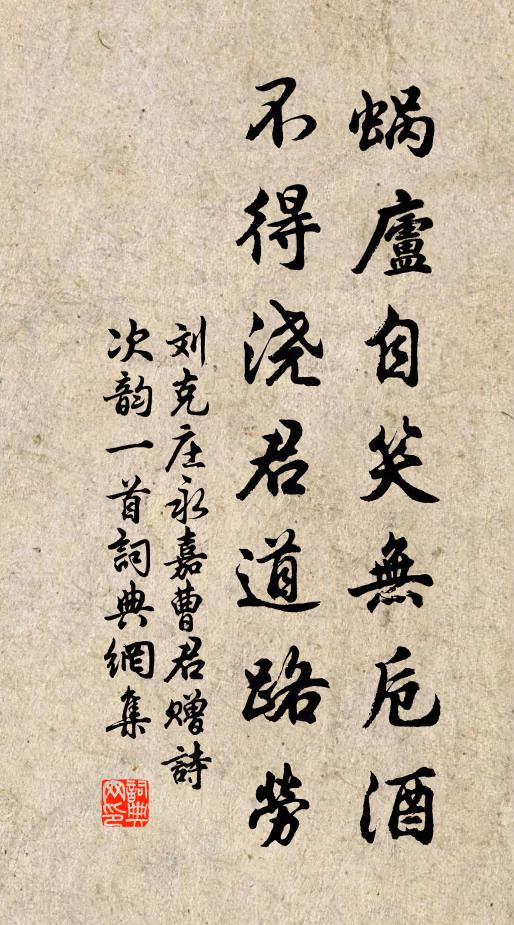 蜗廬自笑無卮酒
不得浇君道路勞
刘克庄永嘉曹君赠詩
次韵一首詞典網集
詞典
网印